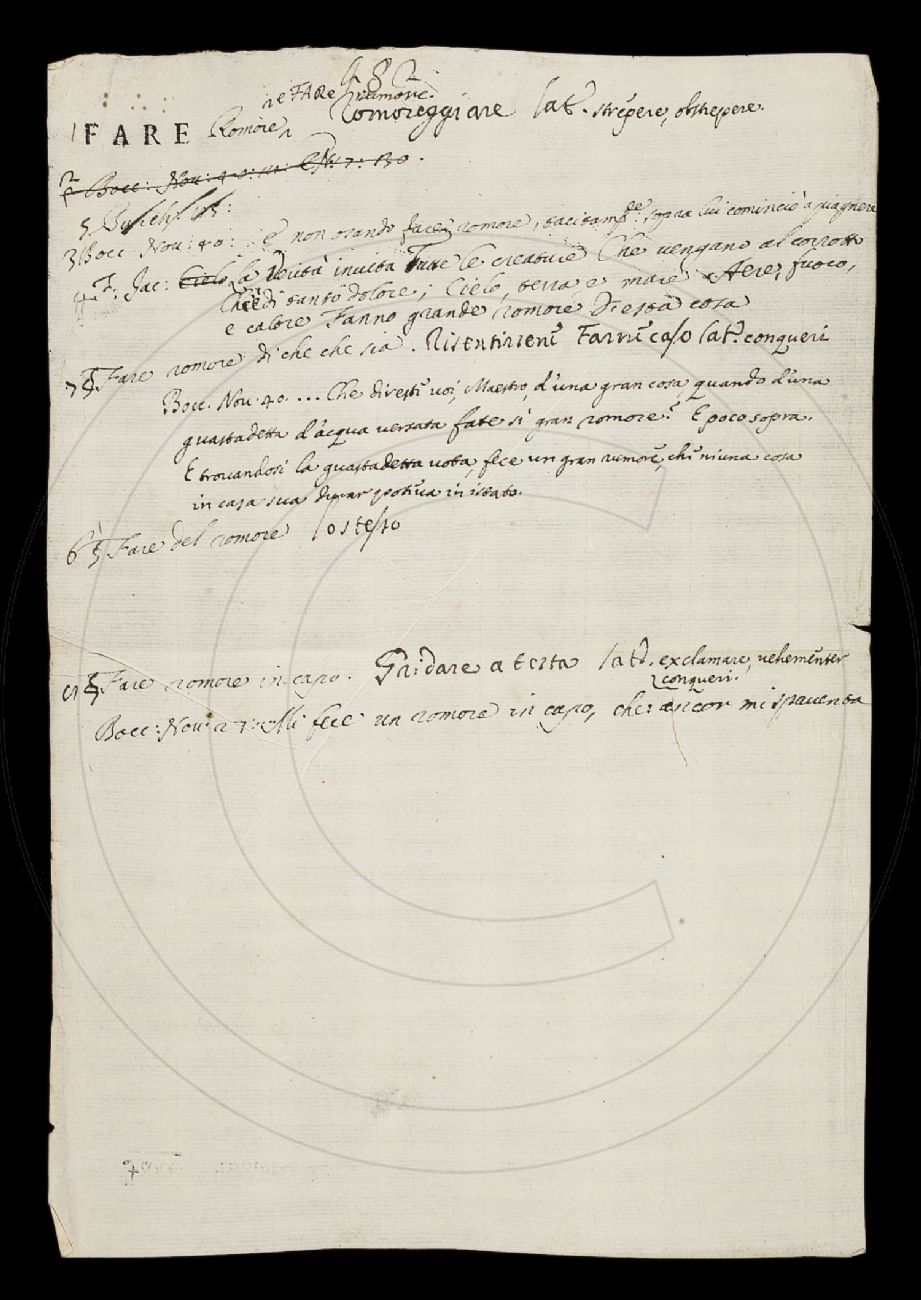 482
1 FARE Romore, e FARE rumore. Romoreggiare lat. strepere, obstrepere.
2 Bocc: Nov: 40: 11: E Nov: 7: 130.
5 Burch:
3 Bocc: Nov: 40: E non osando fare romore, tacitam.te sopra lui cominciò a piagnere
4 F. Jac: Cielo la Verità invita Tutte le creature Che vengano al corrotto
Che è di tanto dolore; Cielo, terra e mare; Aere, fuoco,
e calore Fanno grande romore Di esta cosa
7 § Fare romore di che che sia. Risentirsene Farne caso lat. conqueri
Bocc. Nov. 40. ... Che direste voi, Maestro, d'una gran cosa, quando d'una
guastadetta d'acqua versata fate sì gran romore? E poco sopra.
E trovandosi la guastadetta vota, fece un gran rumore, che niuna cosa
in casa sua durar poteva in istato.
6 § Fare del romore lo stesso
§ Fare romore in capo. Gridare a testa lat. exclamare, vehementer
conqueri.
Bocc: Nov: 27: Mi fece un romore in capo, che: ancor mi spaventa